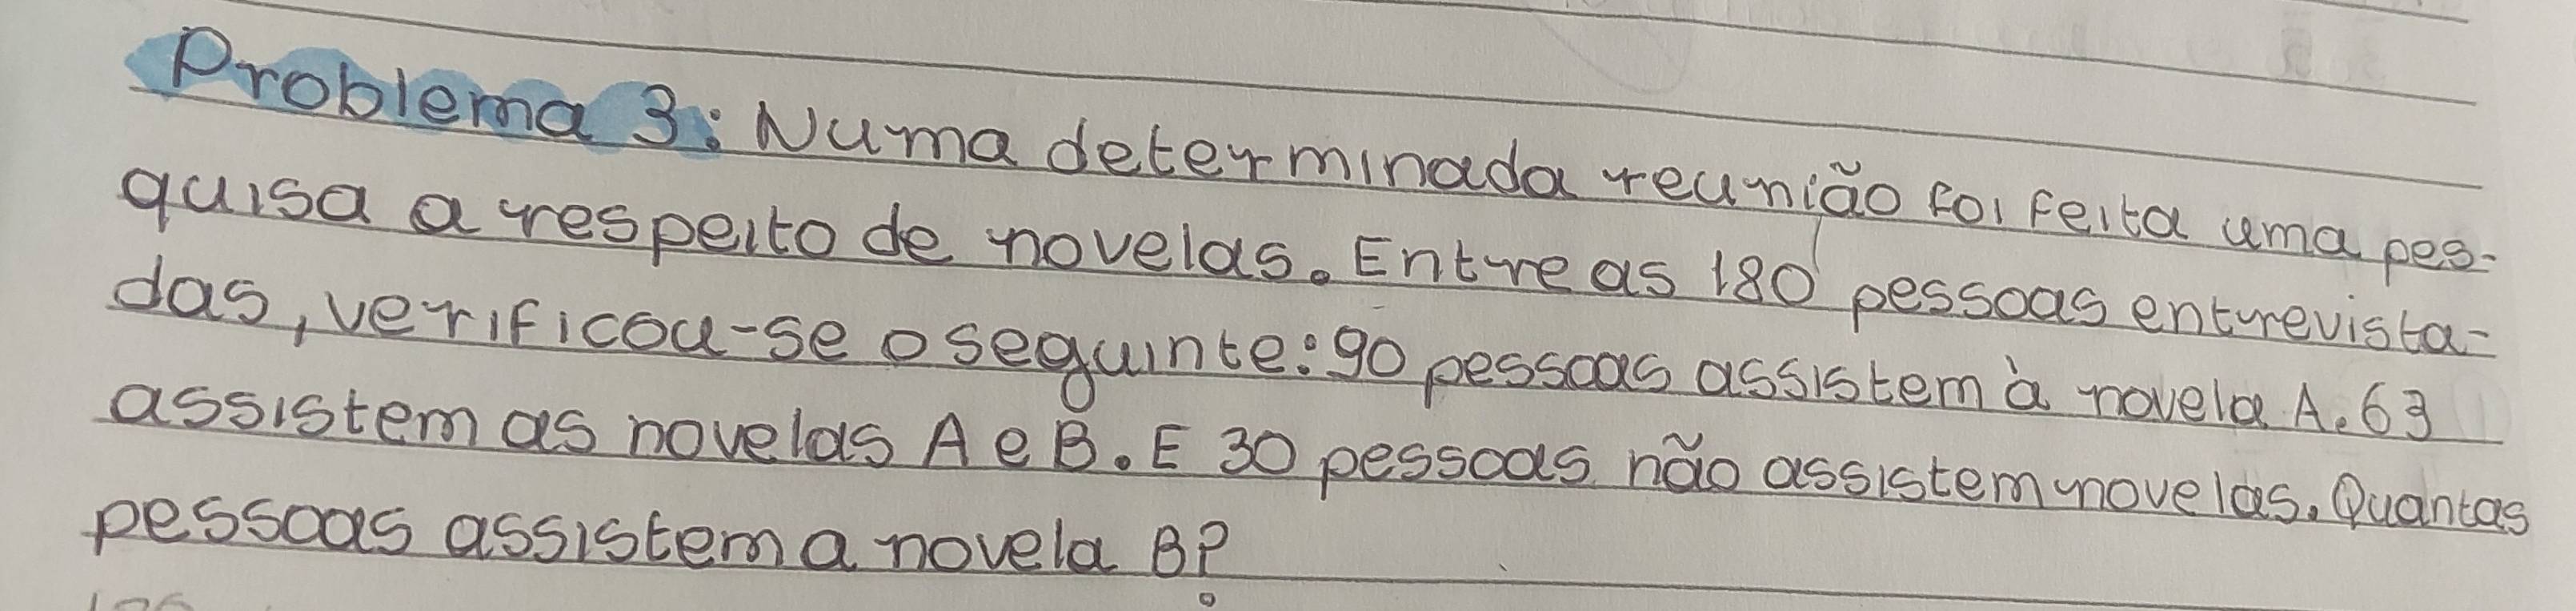 Problema 3: Numa determinada reunião foi feita uma pes-
quisa a respeito de novelas. Entre as 180 pessoas entrevista-
das, verificou-se o seguinte: 90 pessoas assistem à novela A. 63
assistem as novelas A e B. E 30 pessoas não assistem novelas. Quantas
pessoas assistem a novela B?